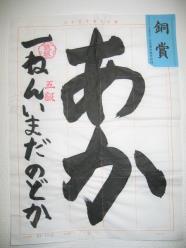 銅賞
あか
五級
一ねん いまだのどか